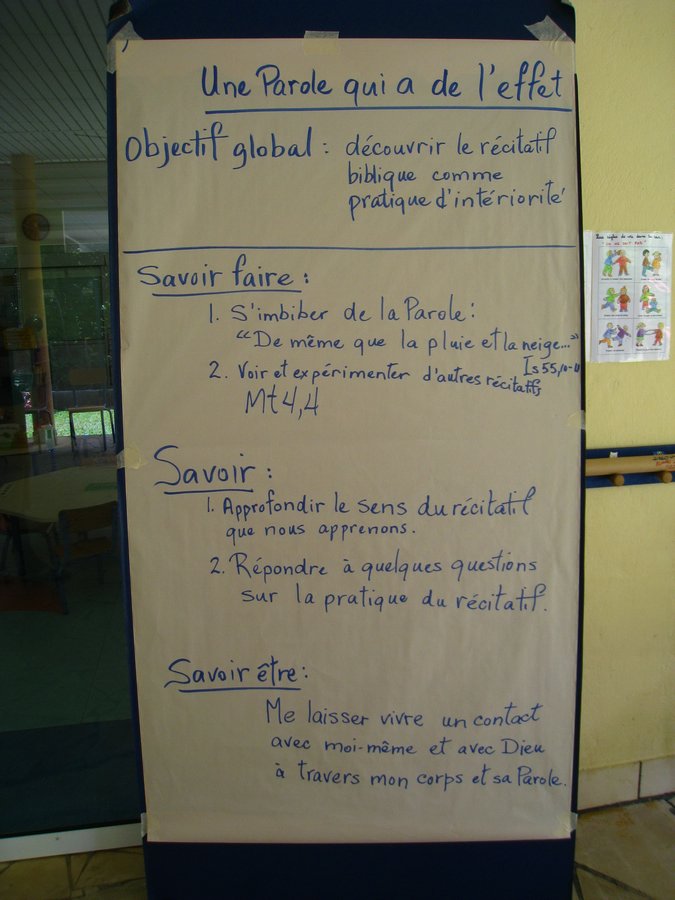 Une Parole qui a de l'effet
Objectif global : découvrir le récitatif
biblique comme
pratique d'intériorité
Savoir faire :
1. S'imbiber de la Parole :
"De même que la pluie et la neige..."
Is 55,10-11
2. Voir et expérimenter d'autres récitatifs
Mt 4,4
Savoir :
1. Approfondir le sens du récitatif
que nous apprenons.
2. Répondre à quelques questions
sur la pratique du récitatif.
Savoir être :
Me laisser vivre un contact
avec moi-même et avec Dieu
à travers mon corps et sa Parole.